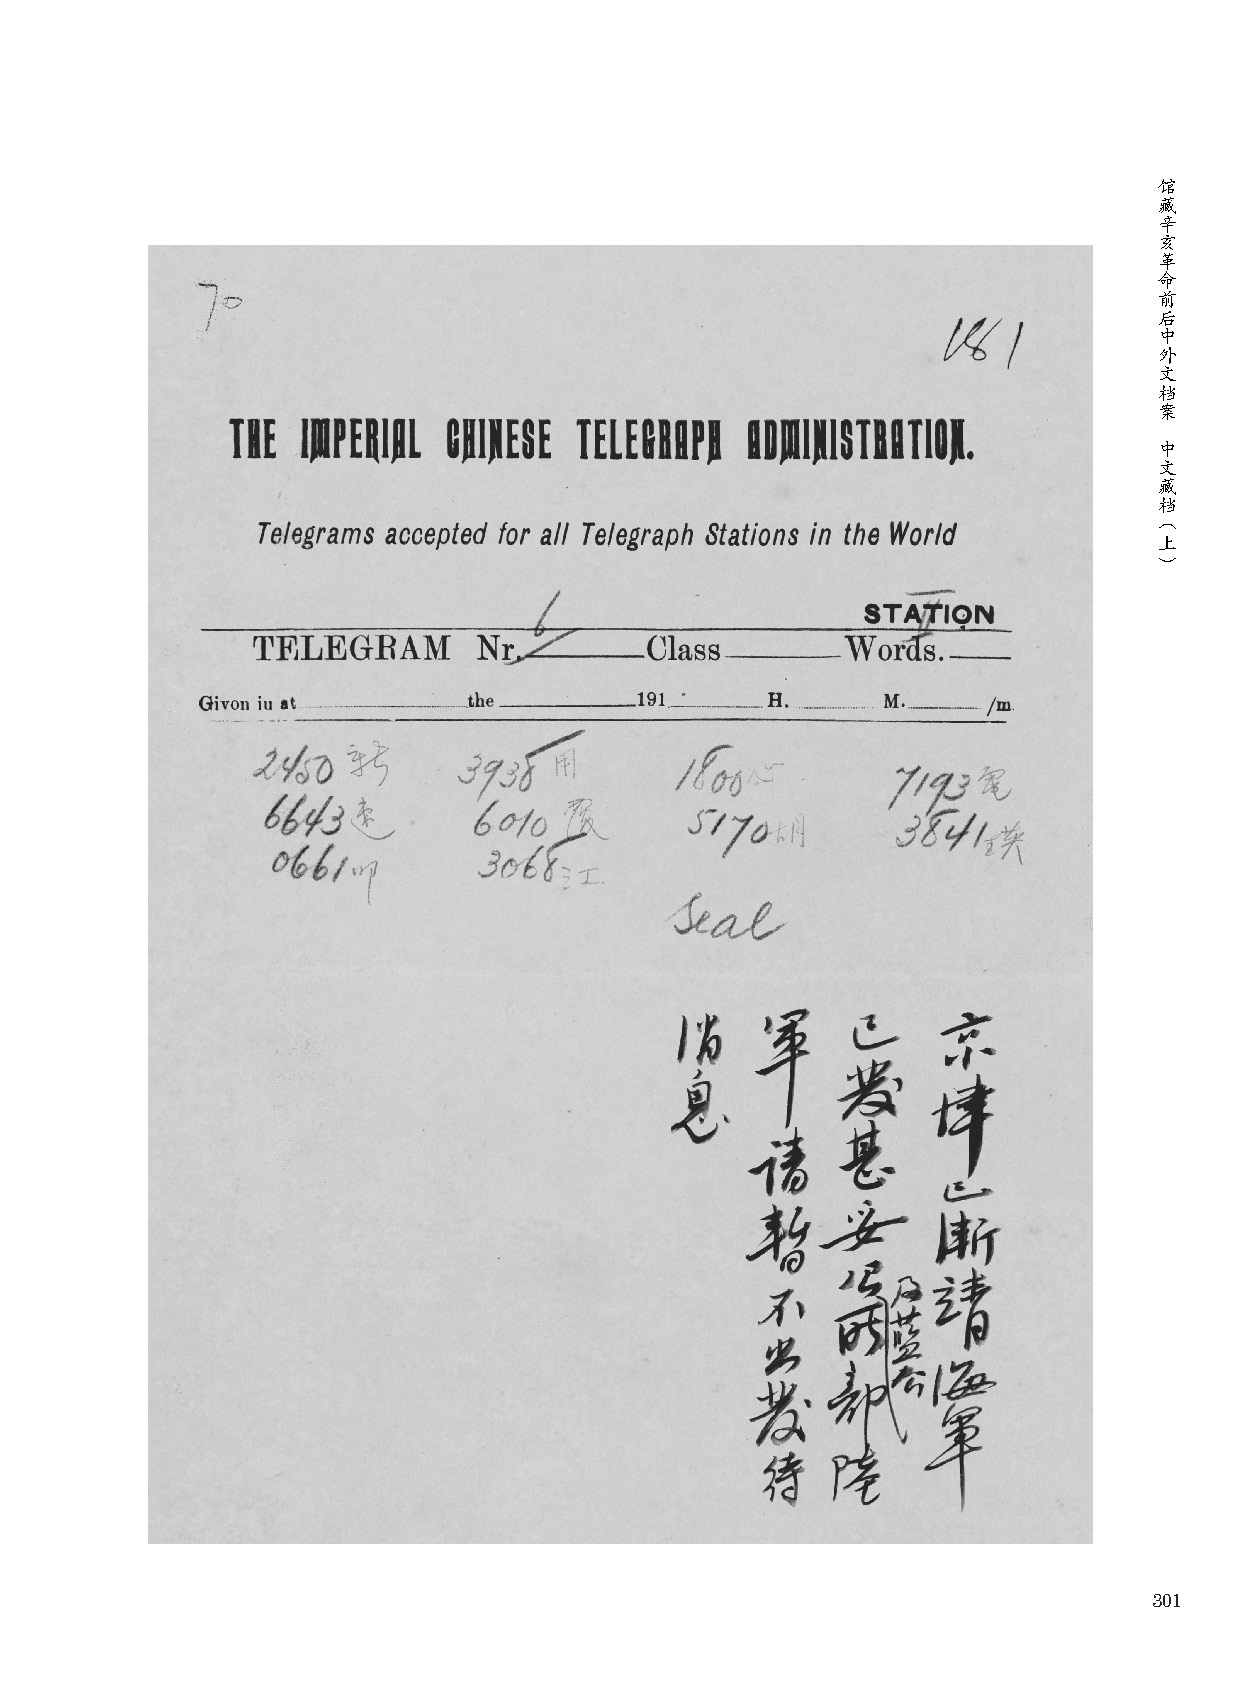 馆藏辛亥革命前后中外文档案 中文藏档(上)
70
181
THE IMPERIAL CHINESE TELEGRAPH ADMINISTRATION.
Telegrams accepted for all Telegraph Stations in the World
STATION
TELEGRAM Nr. 6 Class Words. 11
Givon iu at the 191 H. M. /m
2450 转 3938 用 1800 心 7193 電
6643 速 6010 覆 5170 胡 3841 瑛
0661 叩 3068 江
Seal
京津已斷請海軍
已發甚妥 所部陸
及藍
軍請暫不出發待
消息
301